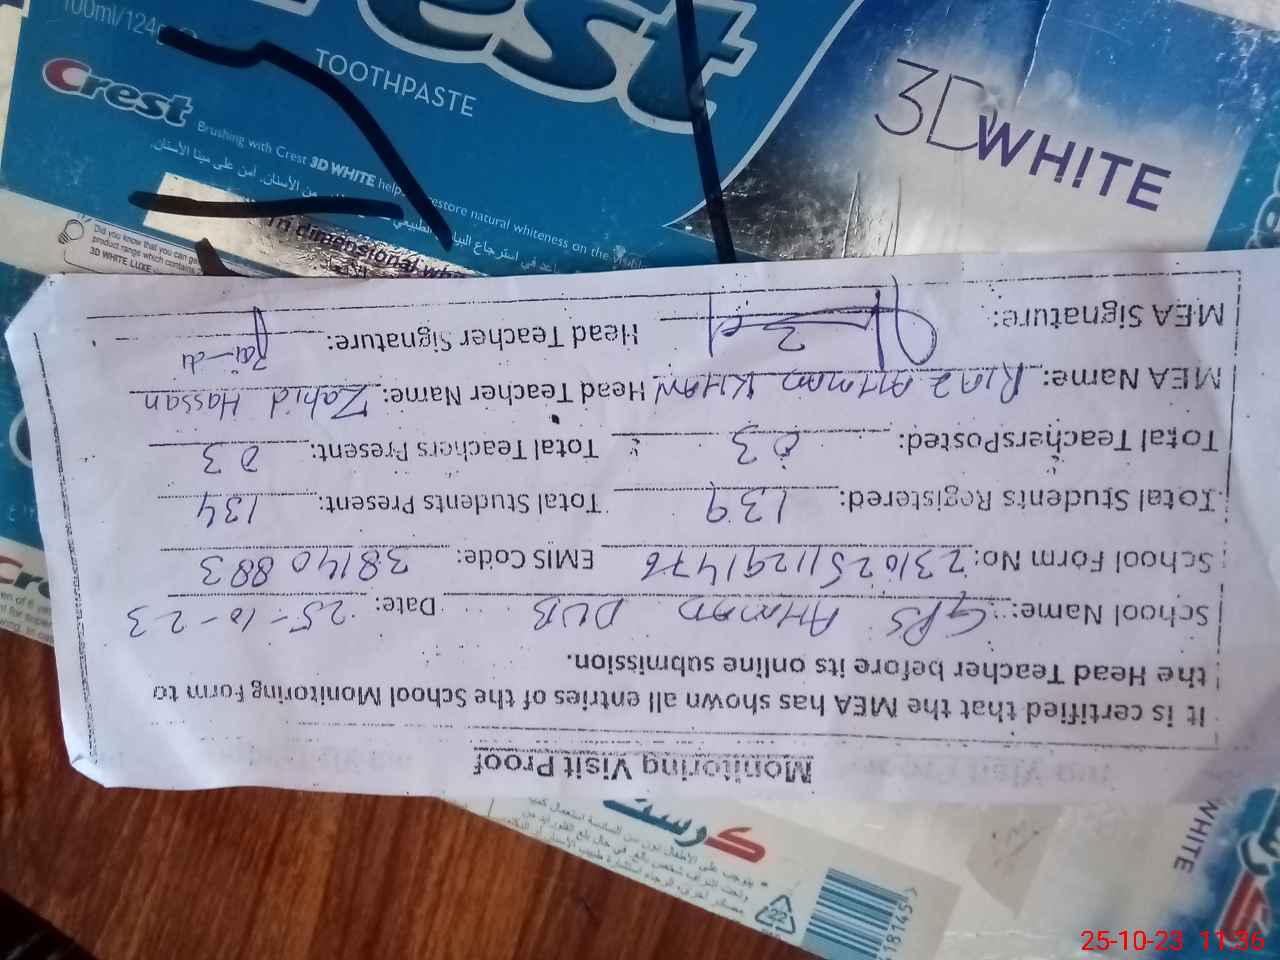 Monitoring Visit Proof
It is certified that the MEA has shown all entries of the School Monitoring Form to
the Head Teacher before its online submission.
School Name: GPS AHMAD DUB Date: 25-10-23
School Form No: 231025111291476 EMIS Code: 38140883
Total Students Registered: 139 Total Students Present: 134
Total TeachersPosted: 03 Total Teachers Present: 03
MEA Name: Riaz AHMAD KHAN Head Teacher Name: Zahid Hassan
MEA Signature: Head Teacher Signature:
100ml/124g
TOOTHPASTE
Crest
Brushing with Crest 3D WHITE help restore natural whiteness on the visible
3D WHITE
Did you know that you can get
product range which contains
3D WHITE LUXE
كرست
WHITE
22
18145
25-10-23 11:36